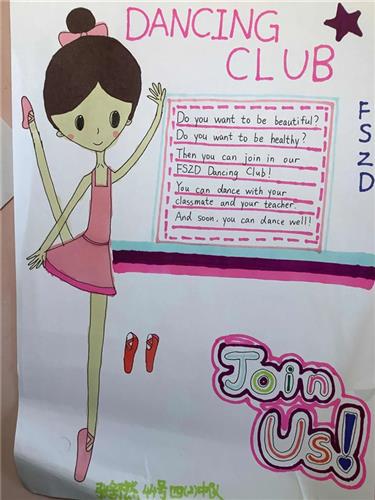 DANCING
CLUB
Do you want to be beautiful?
Do you want to be healthy?
Then you can join in our
FSZD Dancing Club!
You can dance with your
classmate and your teacher.
And soon, you can dance well!
FSZD
Join
Us!
44号